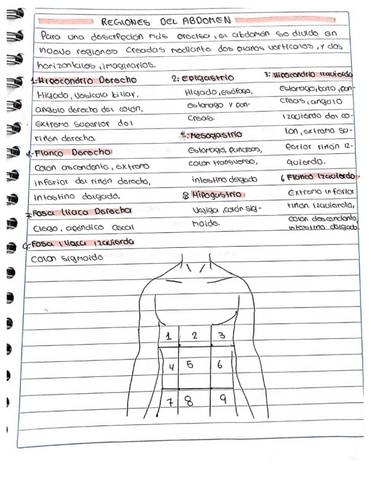 REGIONES DEL ABDOMEN
Para una descripción más precisa, el abdomen se divide en
nueve regiones creadas mediante dos planos verticales, y dos
horizontales, imaginarios.
1. Hipocondrio Derecho
Hígado, vesícula biliar,
angulo derecho del colon,
extremo superior del
riñón derecho.
4. Flanco Derecho
colon ascendente, extremo
inferior del riñón derecho,
intestino delgado.
7. Fosa Iliaca Derecha
Ciego, apéndice cecal
9. Fosa Iliaca Izquierda
colon sigmoide
2. Epigastrio
Hígado, esófago,
estomago y pan-
creas.
5. Mesogastrio
Estomago, pancreas,
colon transverso,
intestino delgado
8 Hipogastrio
Vejiga, colon sig-
moide.
3. Hipocondrio Izquierdo
Estomago, bazo, pan-
creas, angulo
izquierdo del co-
lon, extremo su-
perior riñón iz-
quierdo.
6 Flanco Izquierdo
Extremo inferior
riñón izquierdo,
colon descendente,
intestino delgado.
1 2 3
4 5 6
7 8 9